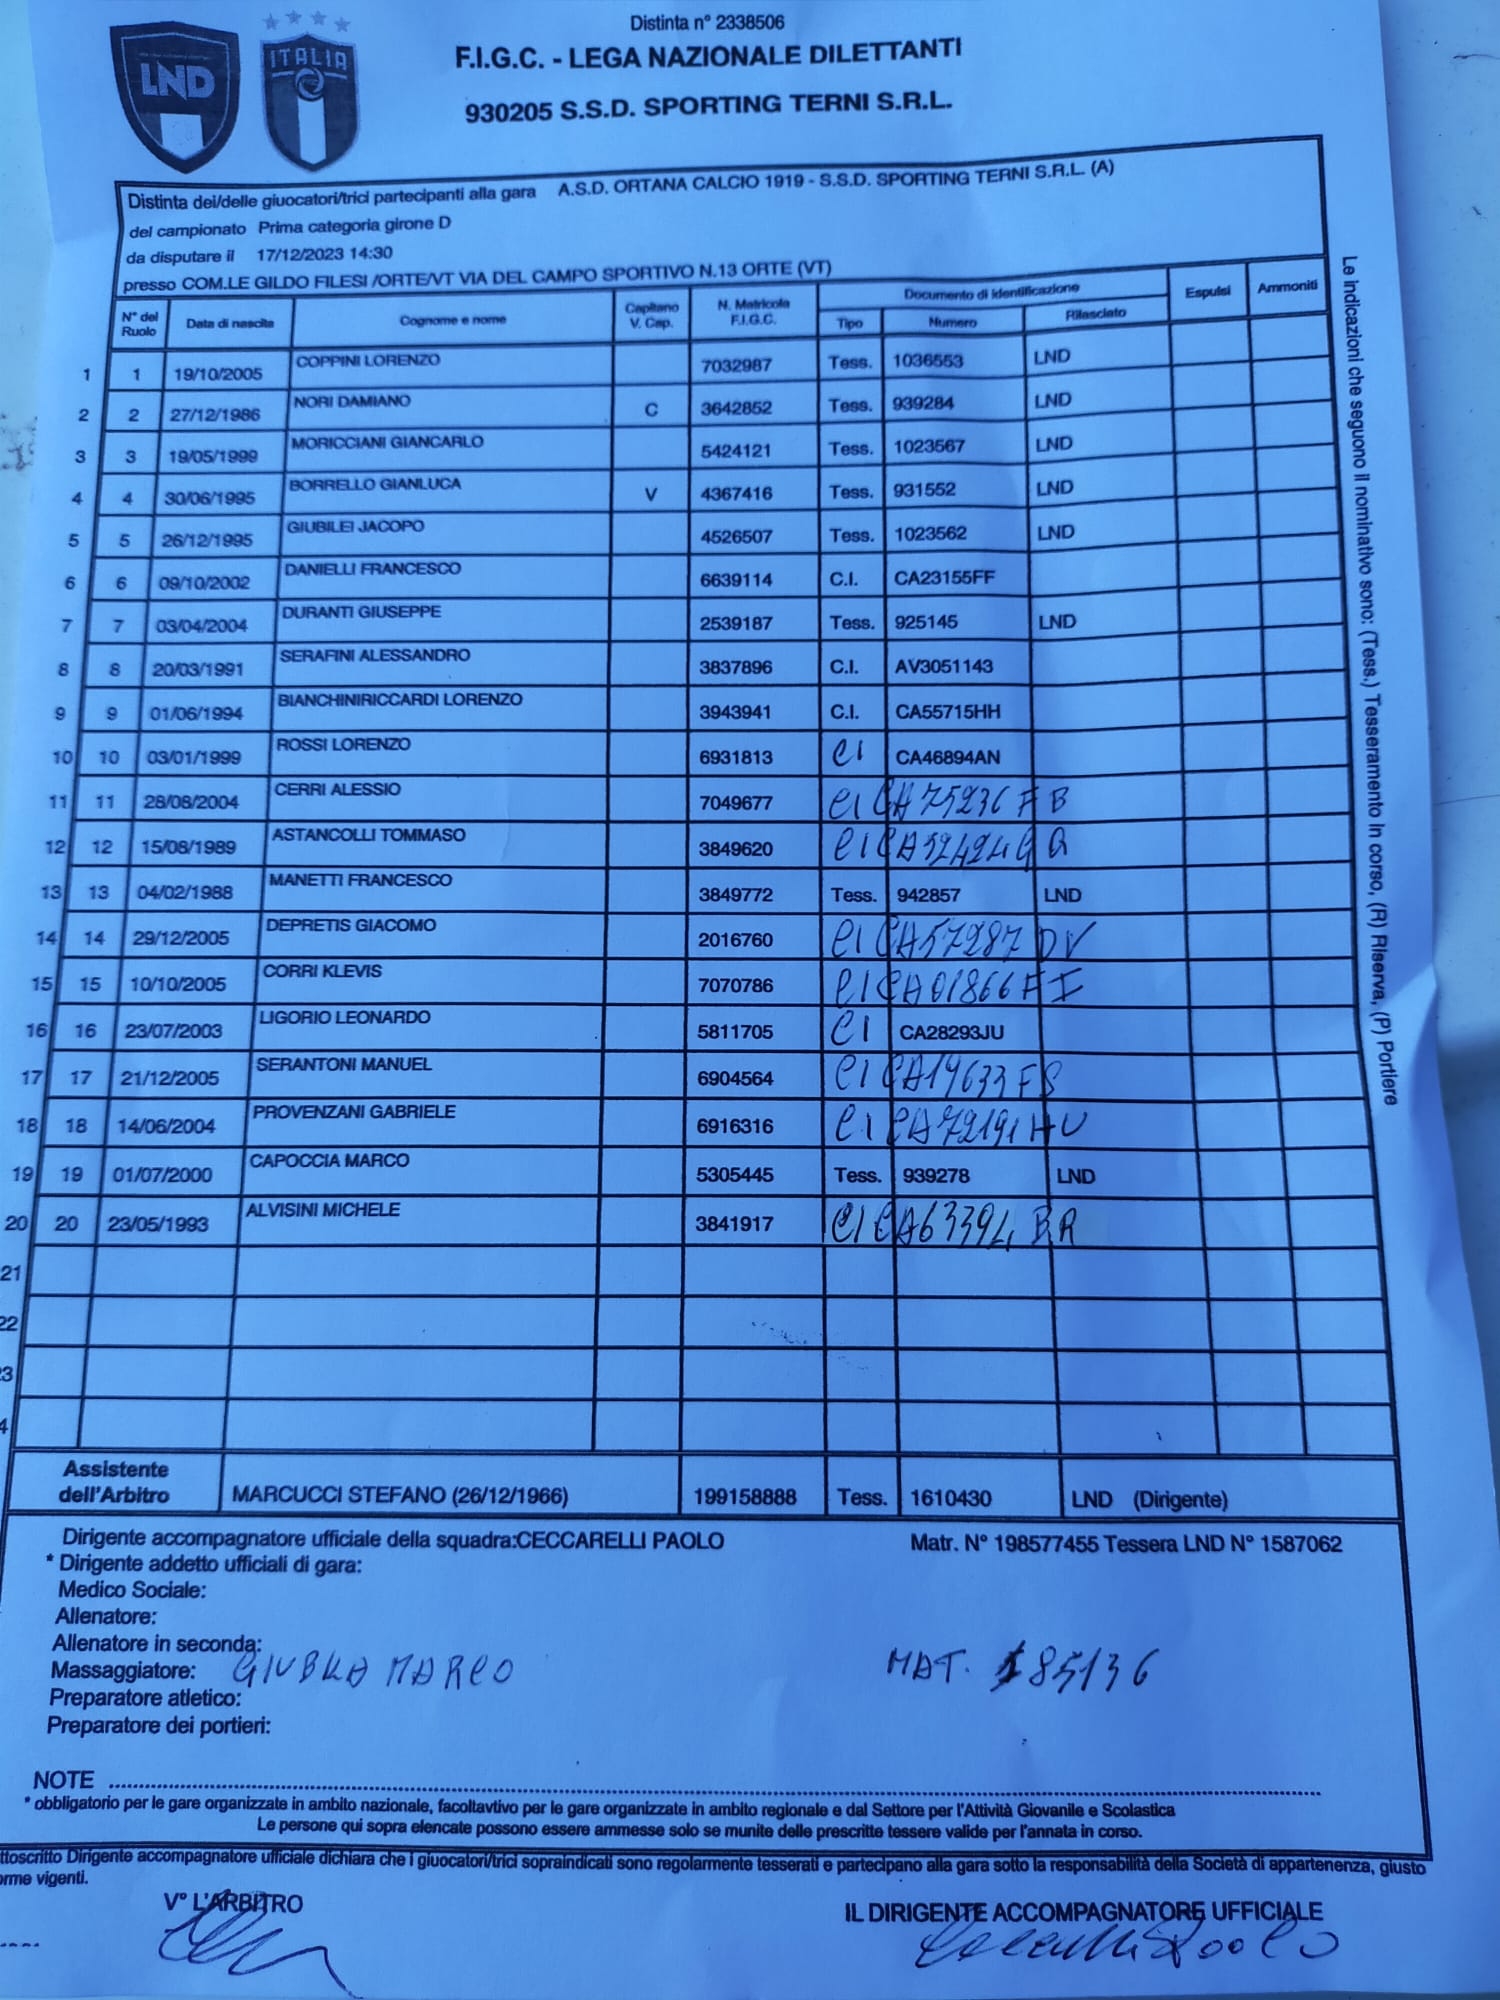 LND
ITALIA
Distinta n° 2338506
F.I.G.C. - LEGA NAZIONALE DILETTANTI
930205 S.S.D. SPORTING TERNI S.R.L.
Distinta dei/delle giuocatori/trici partecipanti alla gara A.S.D. ORTANA CALCIO 1919 - S.S.D. SPORTING TERNI S.R.L. (A)
del campionato Prima categoria girone D
da disputare il 17/12/2023 14:30
presso COM.LE GILDO FILESI /ORTE/VT VIA DEL CAMPO SPORTIVO N.13 ORTE (VT)
N° del Ruolo Data di nascita Cognome e nome Capitano V. Cap. N. Matricola F.I.G.C. Documento di identificazione Tipo Numero Rilasciato Espulsi Ammoniti
1 1 19/10/2005 COPPINI LORENZO 7032987 Tess. 1036553 LND
2 2 27/12/1986 NORI DAMIANO C 3642852 Tess. 939284 LND
3 3 19/05/1999 MORICCIANI GIANCARLO 5424121 Tess. 1023567 LND
4 4 30/06/1995 BORRELLO GIANLUCA V 4367416 Tess. 931552 LND
5 5 26/12/1995 GIUBILEI JACOPO 4526507 Tess. 1023562 LND
6 6 09/10/2002 DANIELLI FRANCESCO 6639114 C.I. CA23155FF
7 7 03/04/2004 DURANTI GIUSEPPE 2539187 Tess. 925145 LND
8 8 20/03/1991 SERAFINI ALESSANDRO 3837896 C.I. AV3051143
9 9 01/06/1994 BIANCHINIRICCARDI LORENZO 3943941 C.I. CA55715HH
10 10 03/01/1999 ROSSI LORENZO 6931813 CI CA46894AN
11 11 28/08/2004 CERRI ALESSIO 7049677 CI CA75236FB
12 12 15/08/1989 ASTANCOLLI TOMMASO 3849620 CI
13 13 04/02/1988 MANETTI FRANCESCO 3849772 Tess. 942857 LND
14 14 29/12/2005 DEPRETIS GIACOMO 2016760 CI CA57287DV
15 15 10/10/2005 CORRI KLEVIS 7070786 CI CA01866FI
16 16 23/07/2003 LIGORIO LEONARDO 5811705 CI CA28293JU
17 17 21/12/2005 SERANTONI MANUEL 6904564 CI CA19633FS
18 18 14/06/2004 PROVENZANI GABRIELE 6916316 CI CA72191HU
19 19 01/07/2000 CAPOCCIA MARCO 5305445 Tess. 939278 LND
20 20 23/05/1993 ALVISINI MICHELE 3841917 CI CA63394BR
21
22
3
4
Assistente dell'Arbitro MARCUCCI STEFANO (26/12/1966) 199158888 Tess. 1610430 LND (Dirigente)
Dirigente accompagnatore ufficiale della squadra:CECCARELLI PAOLO Matr. N° 198577455 Tessera LND N° 1587062
* Dirigente addetto ufficiali di gara:
Medico Sociale:
Allenatore:
Allenatore in seconda:
Massaggiatore: MARCO MAT. 185136
Preparatore atletico:
Preparatore dei portieri:
NOTE
* obbligatorio per le gare organizzate in ambito nazionale, facoltavtivo per le gare organizzate in ambito regionale e dal Settore per l'Attività Giovanile e Scolastica
Le persone qui sopra elencate possono essere ammesse solo se munite delle prescritte tessere valide per l'annata in corso.
ttoscritto Dirigente accompagnatore ufficiale dichiara che i giuocatori/trici sopraindicati sono regolarmente tesserati e partecipano alla gara sotto la responsabilità della Società di appartenenza, giusto
orme vigenti.
V° L'ARBITRO IL DIRIGENTE ACCOMPAGNATORE UFFICIALE
Le indicazioni che seguono il nominativo sono: (Tess.) Tesseramento in corso, (R) Riserva, (P) Portiere